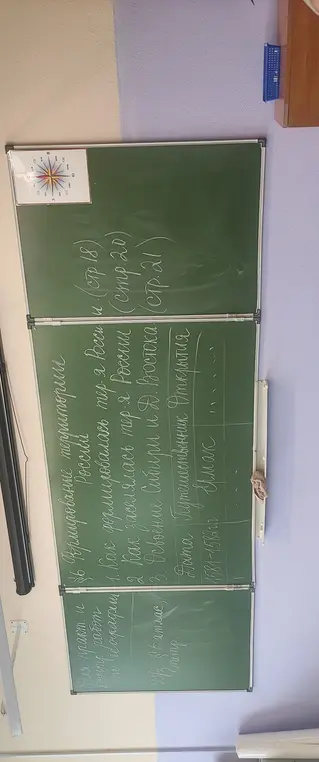 §6 Формирование территории
России
1. Как формировалась тер-я России (стр. 18)
2. Как заселялась тер-я России (стр. 20)
3. Освоение Сибири и Д. Востока (стр. 21)
Дата Путешественник Открытия
Ермак
работ
§6, атлас,